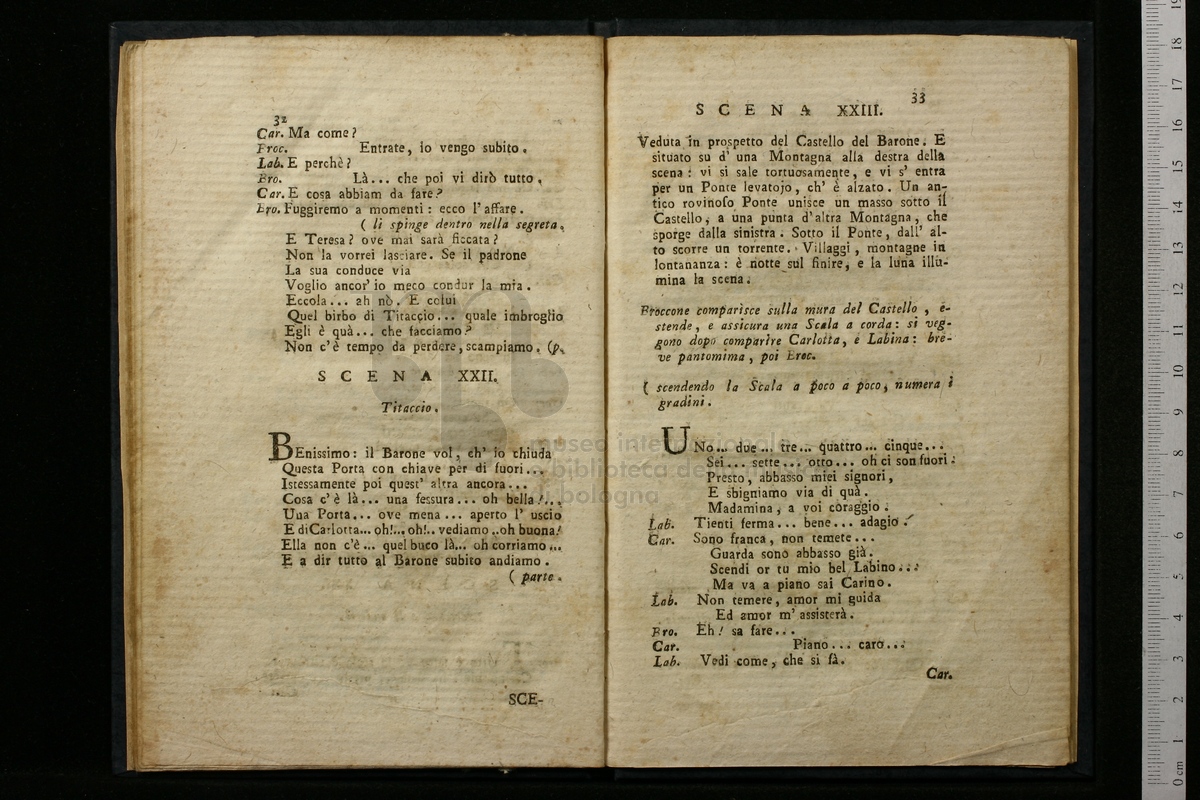 32
Car. Ma come?
Broc. Entrate, io vengo subito.
Lab. E perchè?
Bro. Là... che poi vi dirò tutto.
Car. E cosa abbiam da fare?
Bro. Fuggiremo a momenti: ecco l'affare.
( li spinge dentro nella segreta.
E Teresa? ove mai sarà ficcata?
Non la vorrei lasciare. Se il padrone
La sua conduce via
Voglio ancor' io meco condur la mia.
Eccola... ah nò. E colui
Quel birbo di Titaccio... quale imbroglio
Egli è quà... che facciamo?
Non c'è tempo da perdere, scampiamo. (p.
SCENA XXII.
Titaccio.
BEnissimo: il Barone vol, ch' io chiuda
Questa Porta con chiave per di fuori...
Istessamente poi quest' altra ancora...
Cosa c' è là... una fessura... oh bella!...
Una Porta... ove mena... aperto l' uscio
E di Carlotta... oh!... oh!.. vediamo.. oh buona!
Ella non c'è... quel buco là... oh corriamo...
E a dir tutto al Barone subito andiamo.
( parte.
SCE-
33
SCENA XXIII.
Veduta in prospetto del Castello del Barone. E
situato su d' una Montagna alla destra della
scena: vi si sale tortuosamente, e vi s' entra
per un Ponte levatojo, ch' è alzato. Un an-
tico rovinoso Ponte unisce un masso sotto il
Castello, a una punta d'altra Montagna, che
sporge dalla sinistra. Sotto il Ponte, dall' al-
to scorre un torrente. Villaggi, montagne in
lontananza: è notte sul finire, e la luna illu-
mina la scena.
Broccone comparisce sulla mura del Castello, e-
stende, e assicura una Scala a corda: si veg-
gono dopo comparire Carlotta, e Labina: bre-
ve pantomima, poi Broc.
( scendendo la Scala a poco a poco, numera i
gradini.
UNo... due... tre... quattro... cinque...
Sei... sette... otto... oh ci son fuori:
Presto, abbasso miei signori,
E sbigniamo via di quà.
Madamina, a voi coraggio:
Lab. Tienti ferma... bene... adagio!
Car. Sono franca, non temete...
Guarda sono abbasso già.
Scendi or tu mio bel Labino...
Ma va a piano sai Carino.
Lab. Non temere, amor mi guida
Ed amor m' assisterà.
Bro. Eh! sa fare...
Car. Piano... caro...
Lab. Vedi come, che si fà.
Car.